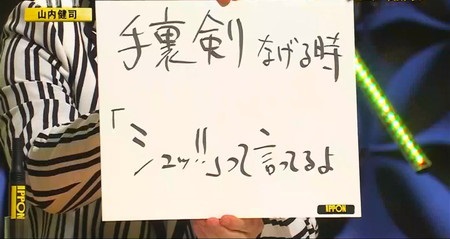 山内健司
手裏剣 なげる時
「シュッ!!」って言ってるよ
IPPON
IPPON